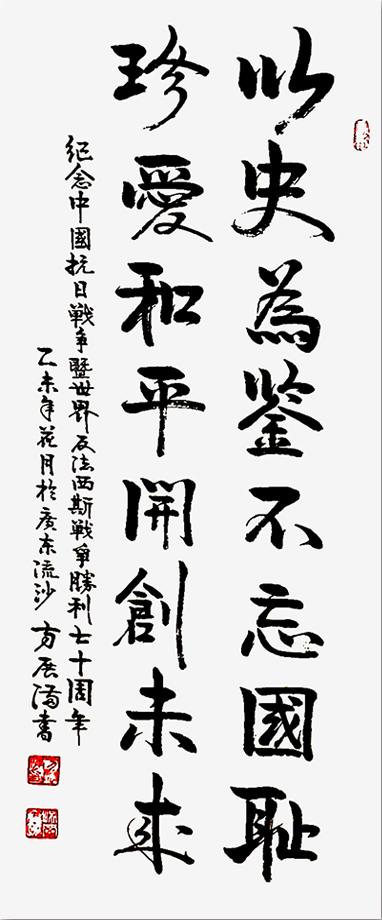 以史為鉴不忘國耻
珍愛和平開創未来
纪念中國抗日戰争暨世界反法西斯戰争勝利七十周年
乙未年花月於廣东流沙 方展满書